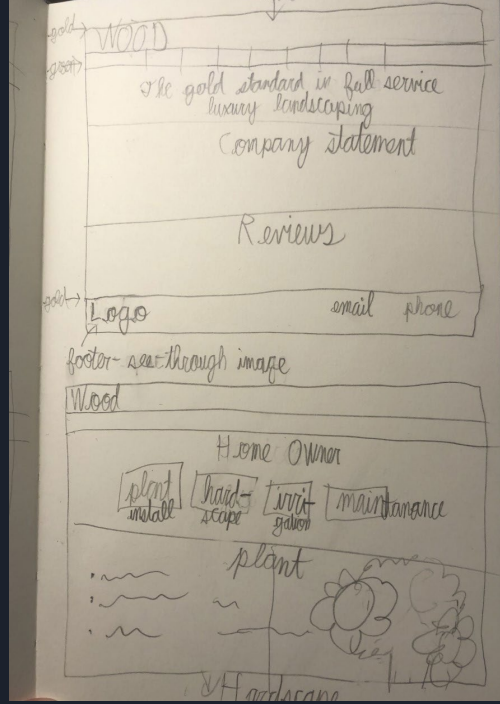 gold
WOOD
green
The gold standard in full service
luxury landscaping
Company statement
Reviews
gold
Logo email phone
footer- see-through image
Wood
Home Owner
plant install
hard-scape
irri-gation
maintanance
plant
Hardscape